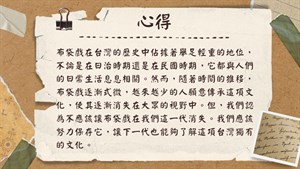 心得
布袋戲在台灣的歷史中佔據著舉足輕重的地位，
不論是在日治時期還是在民國時期，它都與人們
的日常生活息息相關。然而，隨著時間的推移，
布袋戲逐漸式微，越來越少的人願意傳承這項文
化，使其逐漸消失在大眾的視野中。但，我們認
為不應該讓布袋戲在我們這一代消失。我們應該
努力保存它，讓下一代也能夠了解這項台灣獨有
的文化。